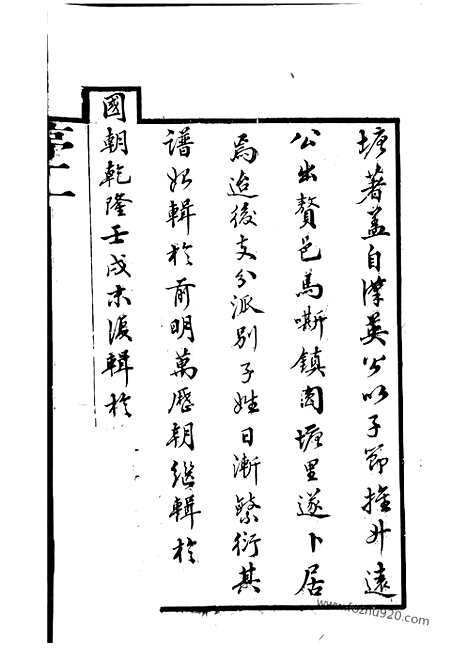 塘著蓋自漢英公以子節推廾遠
公出贅邑馬嘶鎮閭塘里遂卜居
焉迨後支分派別子姓日漸繁衍其
譜始輯於前明萬歷朝繼輯於
國朝乾隆壬戌末復輯於
www.fozhu920.com